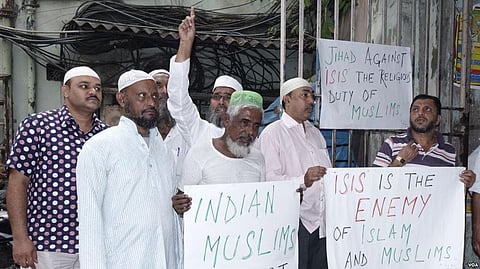 JIHAD AGAINST
ISIS THE RELIGIOUS
DUTY OF
MUSLIMS.
INDIAN
MUSLIMS
ISIS IS THE
ENEMY
OF ISLAM
AND MUSLIMS.
VOA